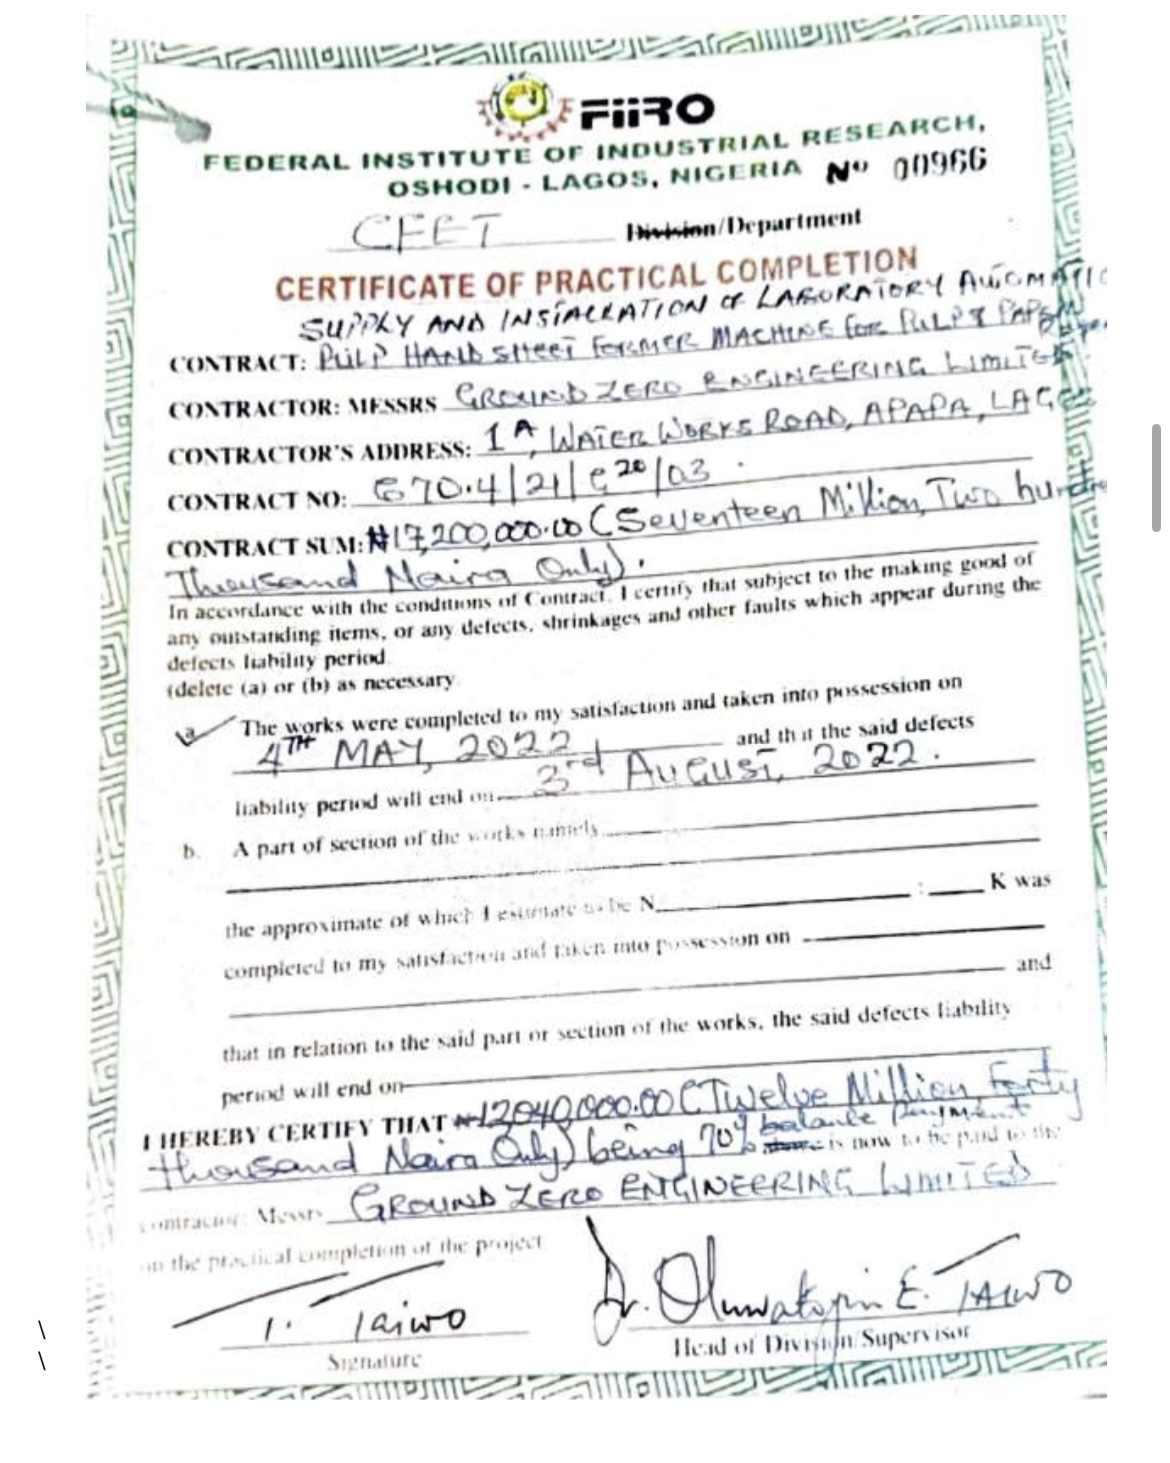 FIIRO
FEDERAL INSTITUTE OF INDUSTRIAL RESEARCH,
OSHODI - LAGOS, NIGERIA Nº 00966
CFET Division/Department
CERTIFICATE OF PRACTICAL COMPLETION
SUPPLY AND INSTALLATION OF LABORATORY AUTOMATIC
CONTRACT: PULP HAND SHEET FORMER MACHINE FOR PULP & PAPER
CONTRACTOR: MESSRS GROUND ZERO ENGINEERING LIMITED
CONTRACTOR'S ADDRESS: 1A, WATER WORKS ROAD, APAPA, LAGOS
CONTRACT NO:
CONTRACT SUM: ₦17,200,000.00 (Seventeen Million, Two hundred
Thousand Naira Only).
In accordance with the conditions of Contract. I certify that subject to the making good of
any outstanding items, or any defects, shrinkages and other faults which appear during the
defects liability period.
(delete (a) or (b) as necessary
a The works were completed to my satisfaction and taken into possession on
4TH MAY, 2022 and that the said defects
liability period will end on 3rd August, 2022.
b. A part of section of the works namely
the approximate of which I estimate to be N : K was
completed to my satisfaction and taken into possession on
and
that in relation to the said part or section of the works, the said defects liability
period will end on
I HEREBY CERTIFY THAT ₦12040,000.00 (Twelve Million, Forty
thousand Naira Only) being 70% balance payment is now to be paid to the
contractor: Messrs GROUND ZERO ENGINEERING LIMITED
on the practical completion of the project
T. Taiwo Dr. Oluwatoyin E. TAIWO
Signature Head of Division/Supervisor
\
\